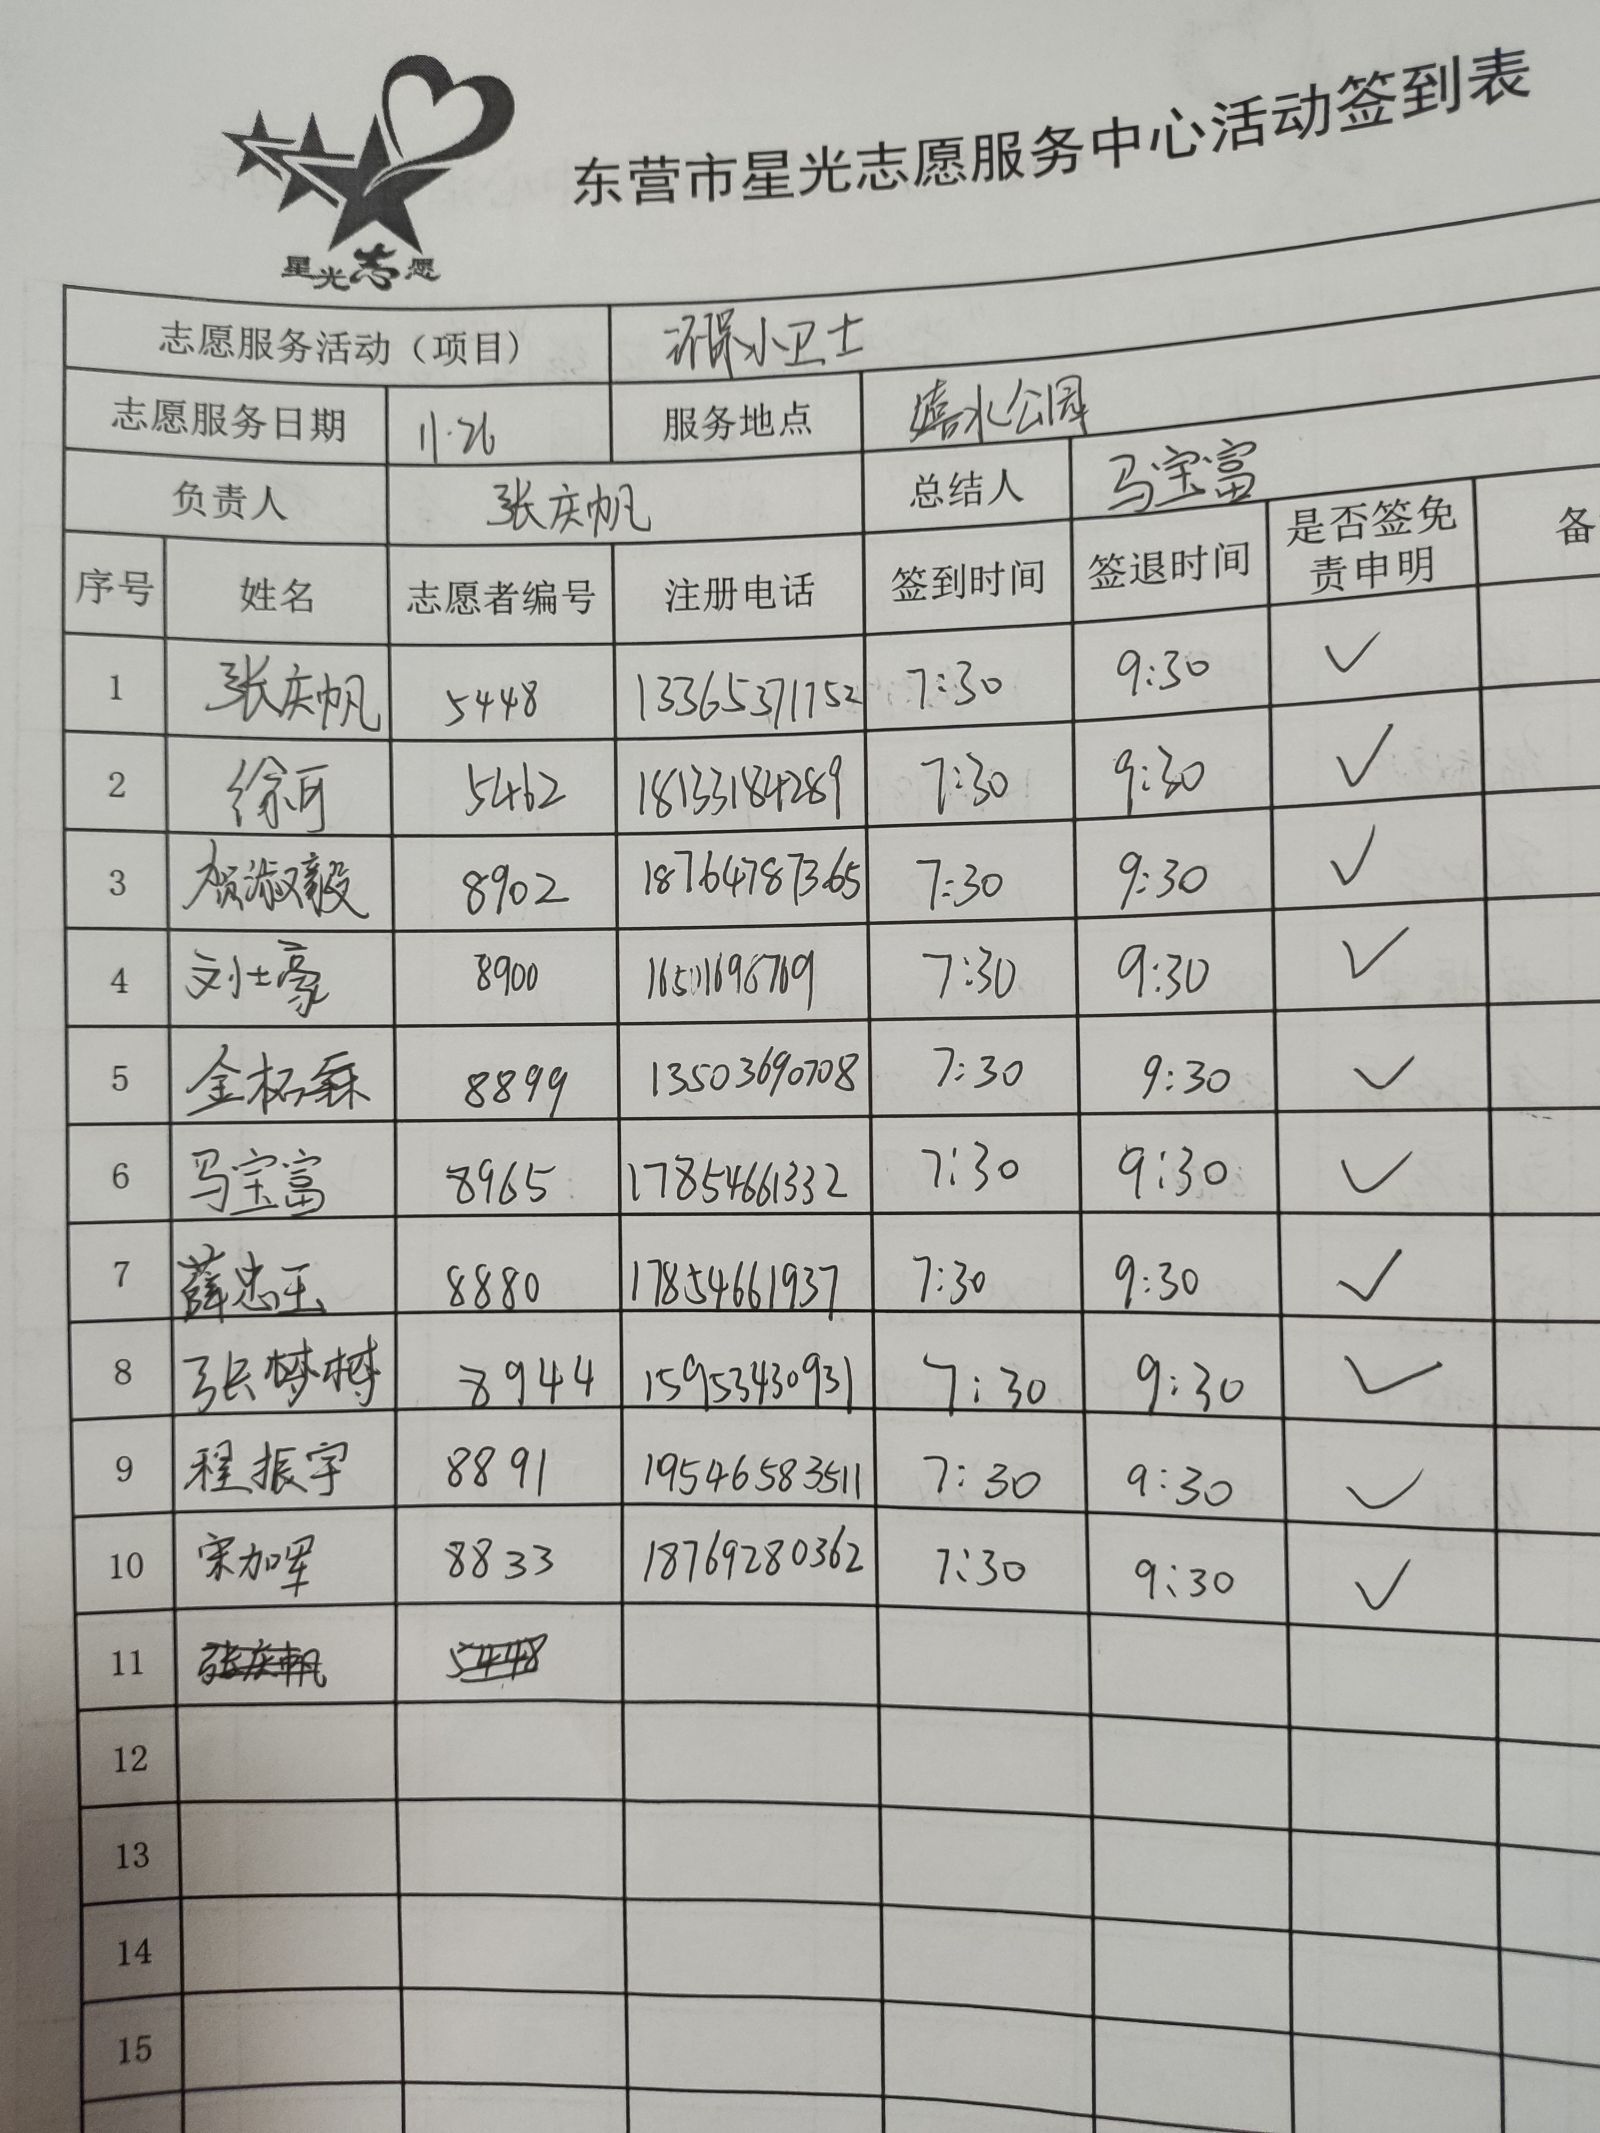 星光志愿
东营市星光志愿服务中心活动签到表
志愿服务活动（项目） 环保小卫士
志愿服务日期 11.26 服务地点 嘻水公园
负责人 张庆帆 总结人 马宝富
序号 姓名 志愿者编号 注册电话 签到时间 签退时间 是否签免责申明 备
1 张庆帆 5448 13365371752 7:30 9:30 ✓
2 徐可 5462 18133184289 7:30 9:30 ✓
3 贺淑毅 8902 18764787365 7:30 9:30 ✓
4 刘士豪 8900 7:30 9:30 ✓
5 金 8899 13503690708 7:30 9:30 ✓
6 马宝富 8965 17854661332 7:30 9:30 ✓
7 薛忠玉 8880 17854661937 7:30 9:30 ✓
8 张梦梦 8944 15953430931 7:30 9:30 ✓
9 程振宇 8891 19546583511 7:30 9:30 ✓
10 宋加军 8833 18769280362 7:30 9:30 ✓
11 张庆帆 5448
12
13
14
15